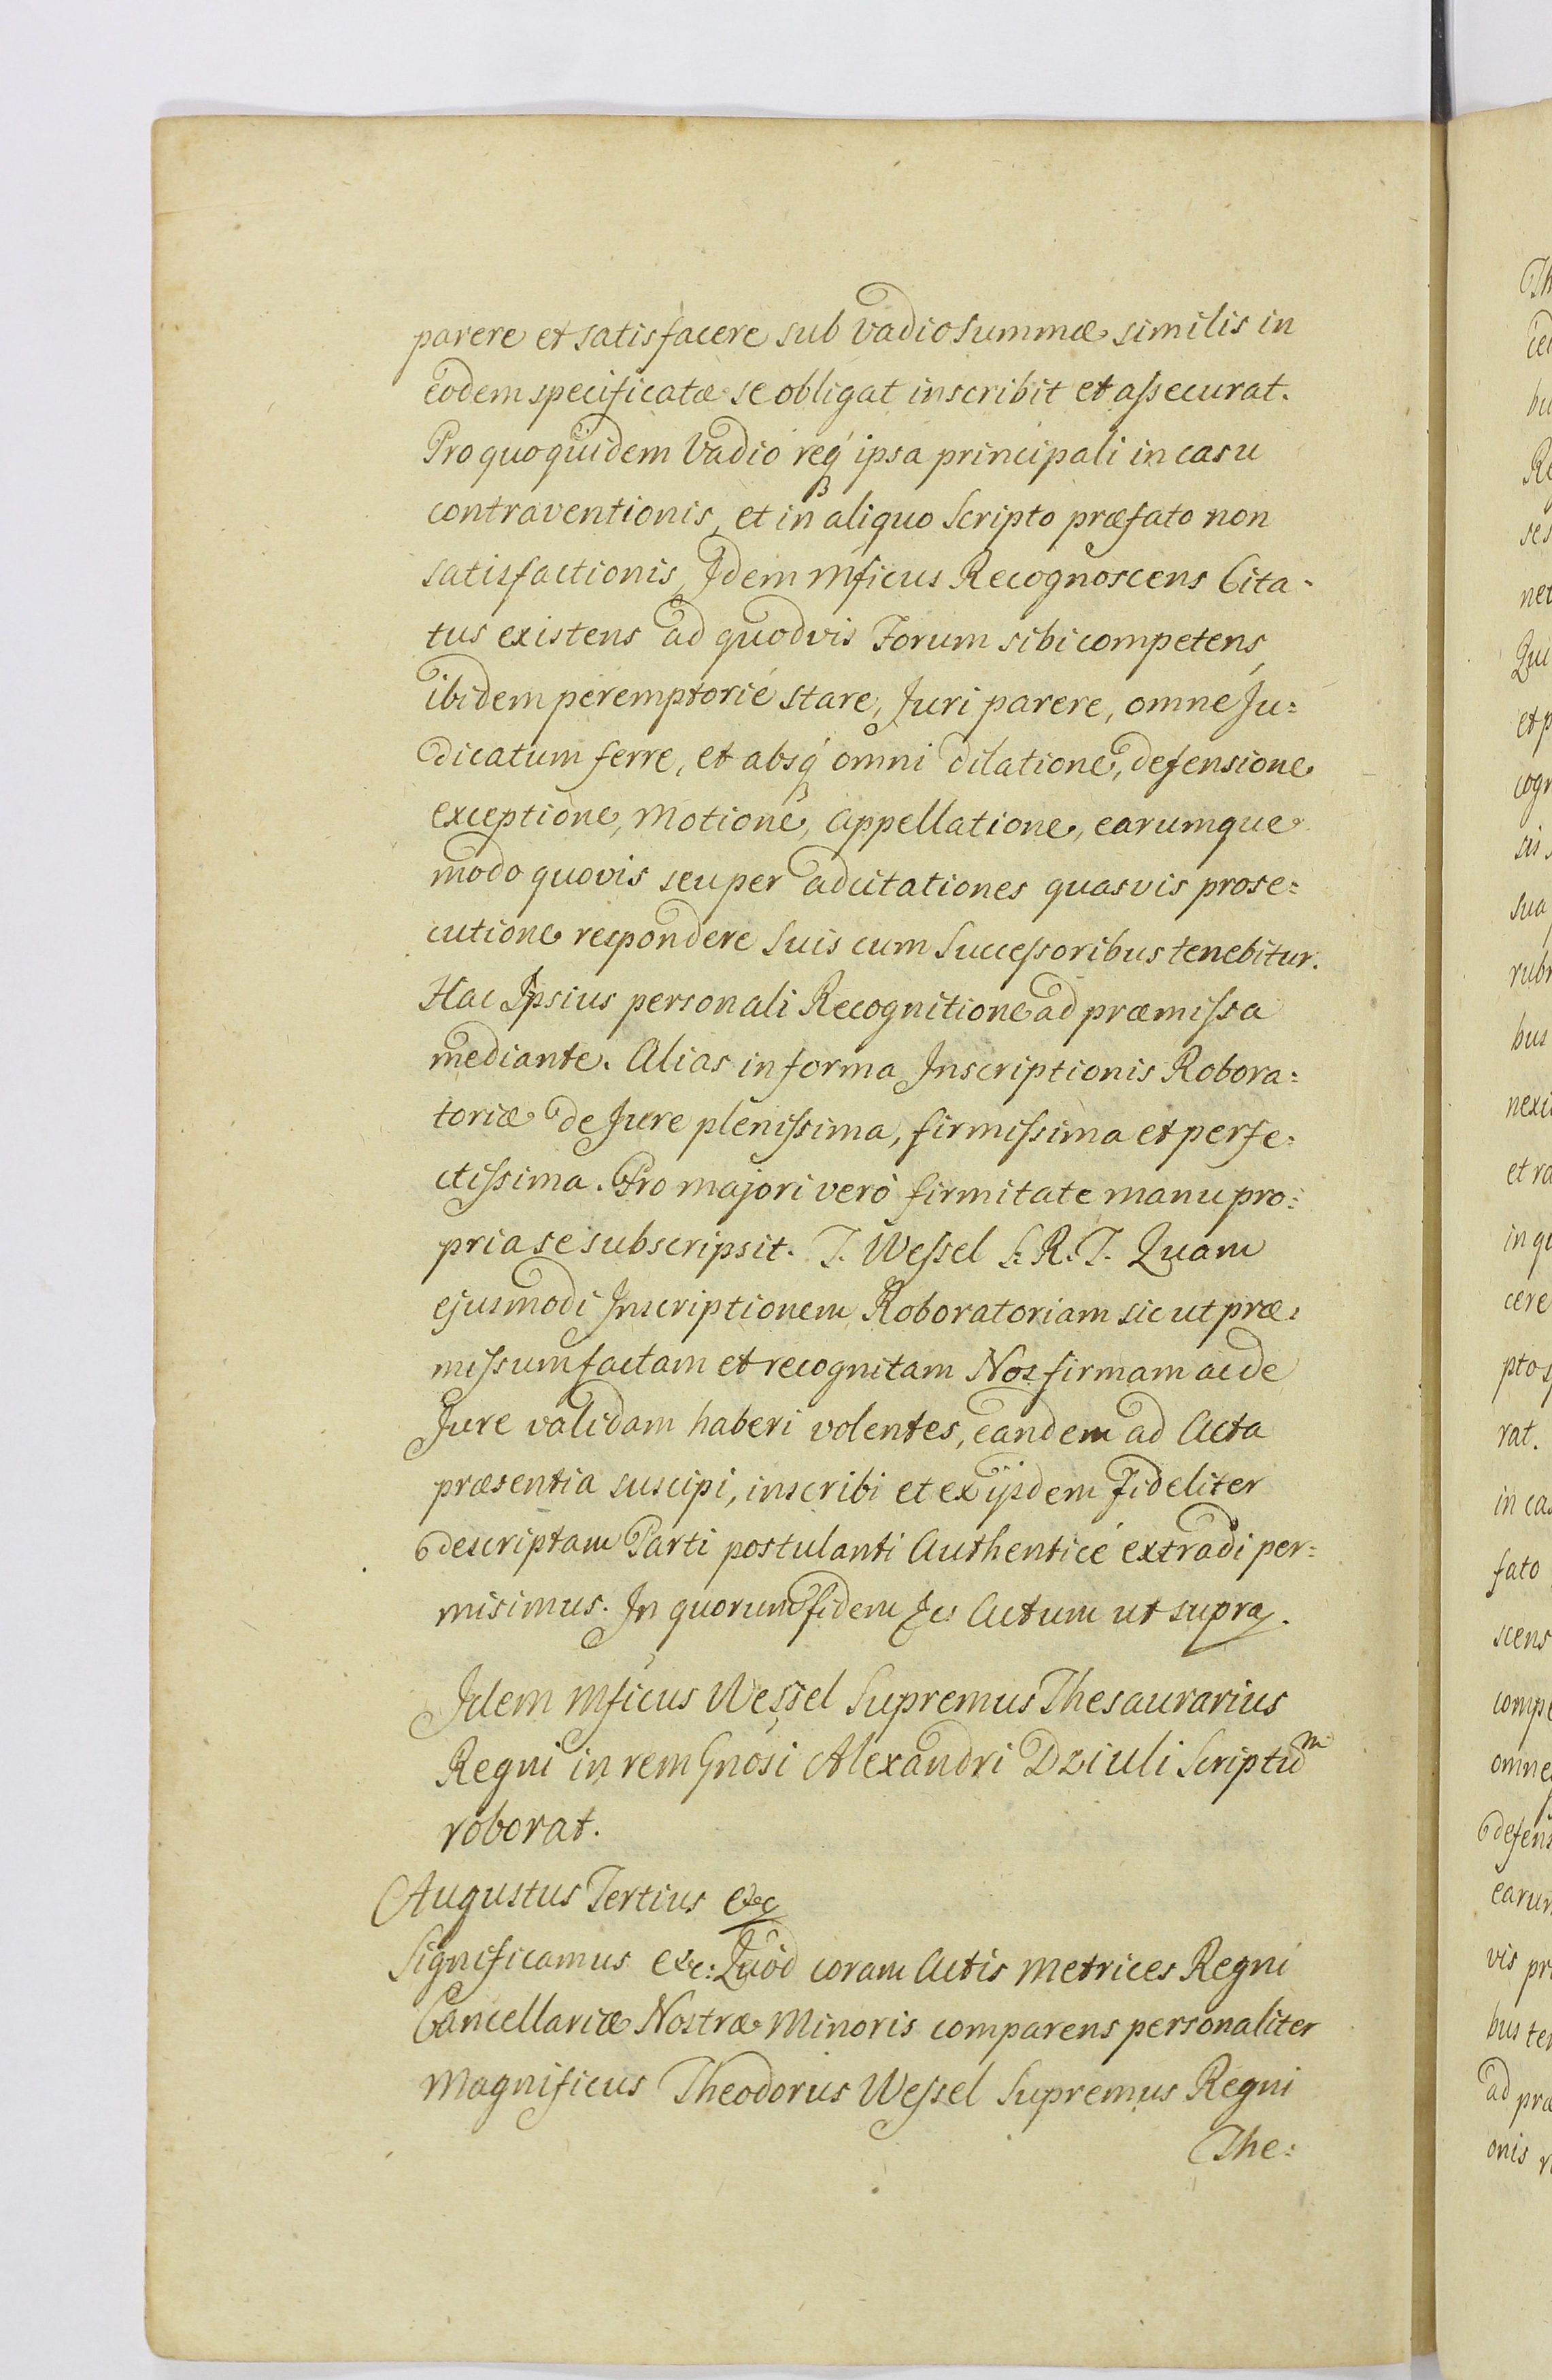 parere et satisfacere sub vadio summæ similis in
eodem specificatæ se obligat inscribit et assecurat.
Pro quo quidem Vadio req́ ipsa principali in casu
contraventionis, et in aliquo Scripto præfato non
satisfactionis, Idem Mficus Recognoscens Cita-
tus existens ad quodvis Forum sibi competens,
ibidem peremptoriè stare, Juri parere, omne Ju=
dicatum ferre, et absq́ omni dilatione, defensione
exceptione, Motione, Appellatione, earumque
modo quovis seu per adcitationes quasvis prose=
cutione respondere Suis cum Successoribus tenebitur.
Hac Ipsius personali Recognitione ad præmissa
mediante. Alias in forma Inscriptionis Robora=
toriæ de Jure plenissima, firmissima et perfe=
ctissima. Pro majori verò firmitate manu pro=
pria se subscripsit. T. Wessel S. R. T. Quam
ejusmodi Inscriptionem Roboratoriam sic ut præ=
missum factam et recognitam Nos firmam ac de
Jure validam haberi volentes, eandem ad Acta
præsentia suscipi, inscribi et ex ijsdem fideliter
descriptam Parti postulanti Authenticè extradi per=
misimus. In quorum fidem &c Actum ut supra.
Idem Mficus Wessel Supremus Thesaurarius
Regni in rem Gnosi Alexandri Dziuli Scriptu^m
roborat.
Augustus Tertius &c
Significamus &c: Quod coram Actis Metrices Regni
Cancellariæ Nostræ Minoris comparens personaliter
Magnificus Theodorus Wessel Supremus Regni
The: